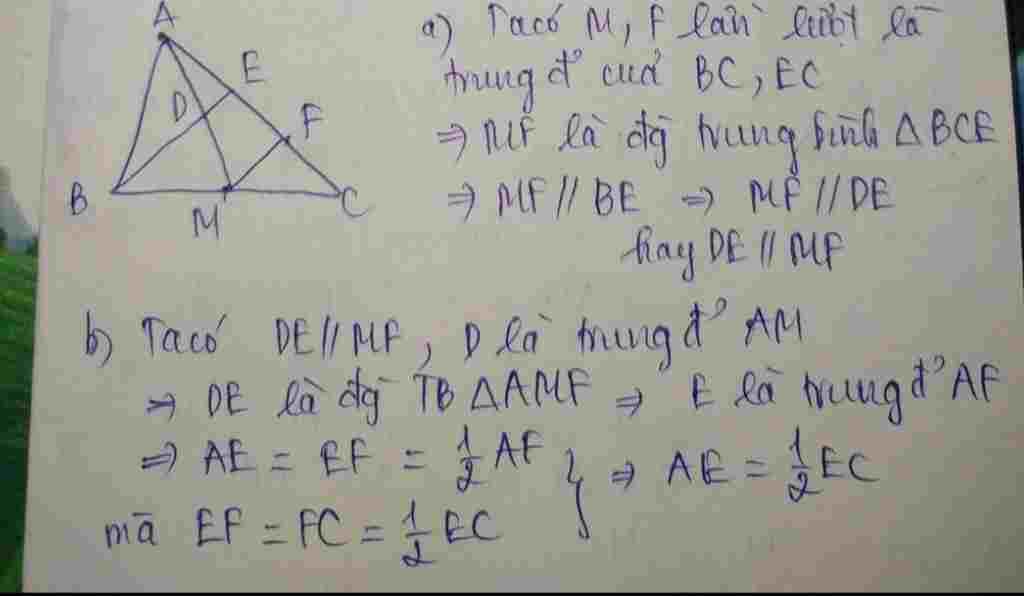 A
E
D
F
B
M
C
a) Ta có M, F lần lượt là
trung đ' của BC, EC
⇒ MF là đg trung bình △BCE
⇒ MF // BE ⇒ MF // DE
hay DE // MF
b) Ta có DE // MF, D là trung đ' AM
⇒ DE là đg TB △AMF ⇒ E là trung đ' AF
⇒ AE = EF = 1/2 AF } ⇒ AE = 1/2 EC
mà EF = FC = 1/2 EC